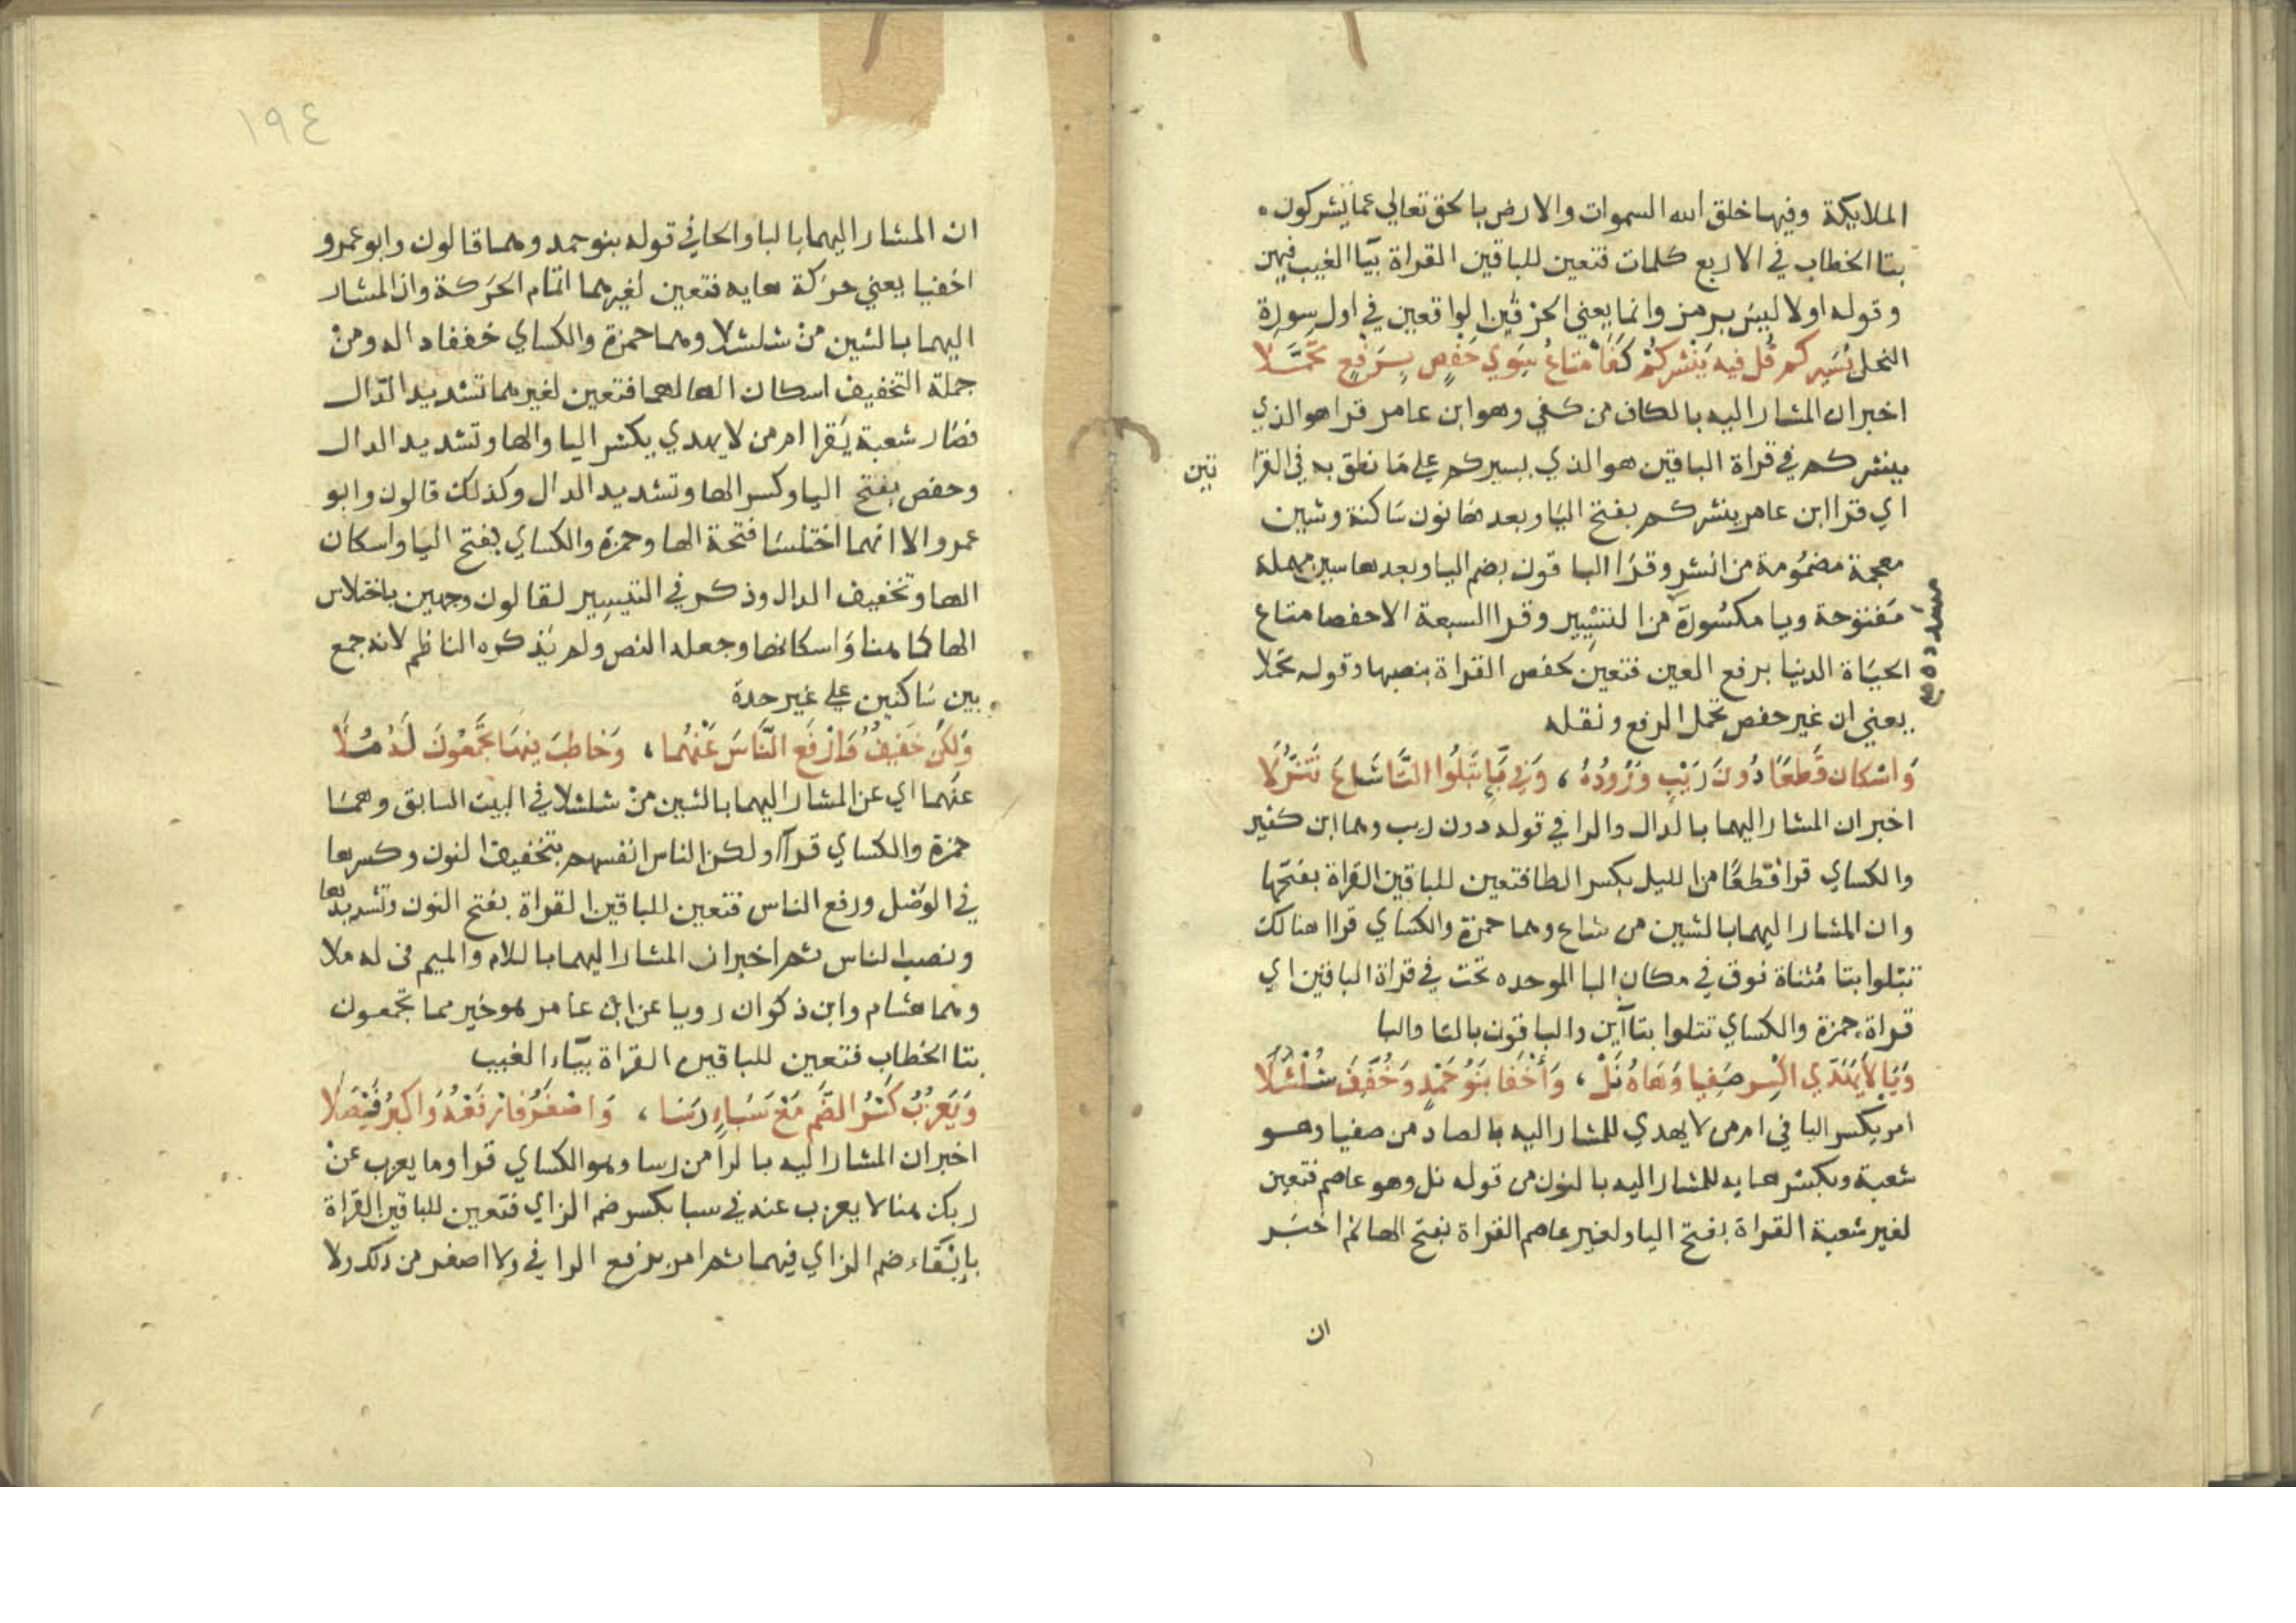 الملايكة وفيها خلق الله السموات والارض بالحق تعالي عما يشركون
بتا الخطاب في الاربع كلمات فتعين للباقين القراة بيا الغيب فيهن
وقوله اولا ليس برمز وانما يعني الحرفين الواقعين في اول سورة
النحل يُسَيِّركم قُل فيه يَنْشُركُمْ كَفَا مَتَاعُ سِوَي حَفْصٍ بِرَفْعٍ تَحَمَّلَا
اخبر ان المشار اليه بالكاف من كفي وهو ابن عامر قرا هو الذي
ينشركم في قراة الباقين هو الذي يسيركم علي ما نطق به في القرا تين
اي قرا ابن عامر ينشركم بفتح اليا وبعدها نون ساكنة وشين
معجمة مضمُومة من النشر وقرا الباقون بضم اليا وبعدها سين مهملة
مفتوحة ويا مكسُورة من التسْيِير وقرا السبعة الا حفصا متاع مشددة
الحيَاة الدنيا برفع العين فتعين لحفص القراة بنصبها وقوله تحملا
يعني ان غير حفص تحمل الرفع ونقله
وَاسْكان قِطَعًا دُونَ رَيْبٍ وُرُودُهُ ، وَفِي بَاءِ تَبْلُوا التَّا شَاعَ تَنَزُّلَا
اخبر ان المشار اليهما بالدال والرا في قوله دون ريب وهما ابن كثير
والكساي قرا قطعًا من الليل بكسر الطا فتعين للباقين القراة بفتحها
وان المشار اليهما بالشين من شاع وهما حمزة والكساي قراا هنالك
تتلوا بتا مُثناة فوق في مكان البا الموحده تحت في قراة الباقين اي
قراة حمزة والكساي تتلوا بتآاين والباقون بالتا والبا
وَيَا لَا يَهَدِّي اكْسِر صَفِيا وَهَاهُ نَلْ ، وَأَخْفَا بَنُو حَمْدٍ وَخُفِّفَ شُلْشُلَا
امر بكسر اليا في امن لا يهدي للمشار اليه بالصاد من صفيا وهو
شعبة وبكسر هايه للمشار اليه بالنون من قوله نل وهو عاصم فتعين
لغير شعبة القراة بفتح اليا ولغير عاصم القراة بفتح الها ثم اخبر
ان
١٩٤
ان المشار اليهما بالبا والحا في قوله بنو حمد وهما قالون وابو عمرو
اخفيا يعني حركة هايه فتعين لغيرهما اتمام الحركة وان المشار
اليهما بالشين منْ شلشلا وهما حمزة والكساي خففا داله ومنْ
جملة التخفيف اسكان الها لهما فتعين لغيرهما تشديد الدال
فصار شعبة يَقرا امن لا يهدي بكسر اليا والها وتشديد الدال
وحفص بفتح اليا وكسر الها وتشديد الدال وكذلك قالون وابو
عمرو الا انهما اختلسا فتحة الها وحمزة والكساي بفتح اليا واسكان
الها وتخفيف الدال وذكر في التيسير لقالون وجهين باختلاس
الها كما هنا وَاسكانها وجعله النص ولم يذكره الناظم لانه جمع
بين ساكنين علي غير حدة
وَلكِنْ خَفِيفٌ وَارْفَعِ النَّاسَ عَنْهُما ، وَخاطِبَ فِيهَا تَجْمَعُونَ لَهُ مُلَا
عنْهما اي عن المشار اليهما بالشين منْ شلشلا في البيت السابق وهما
حمزة والكساي قرآا ولكن الناس انفسهم بتخفيف النون وكسرها
في الوَصْل ورفع الناس فتعين للباقين القراة بفتح النون وتشديدها
ونصب الناس ثم اخبر ان المشار اليهما باللام والميم في له ملا
وهما هشام وابن ذكوان رويا عن ابن عامر هو خير مما تجمعون
بتا الخطاب فتعين للباقين القراة بيَاء الغيب
وَيَعْزُبُ كَسْرُ الضَّمِّ مَعْ سَبَاءٍ رَسَا ، وَاصْغَرُ فَارْفَعْهُ وَاكْبَرُ فَيْصَلَا
اخبر ان المشار اليه بالرا من رسا وهو الكساي قرا وما يعزب عنْ
ربك هنا لا يعزب عنه في سبا بكسر ضم الزاي فتعين للباقين القراة
بإِبْقَاء ضم الزاي فيهما ثم امر برفع الرا في ولا اصغر من ذلك ولا